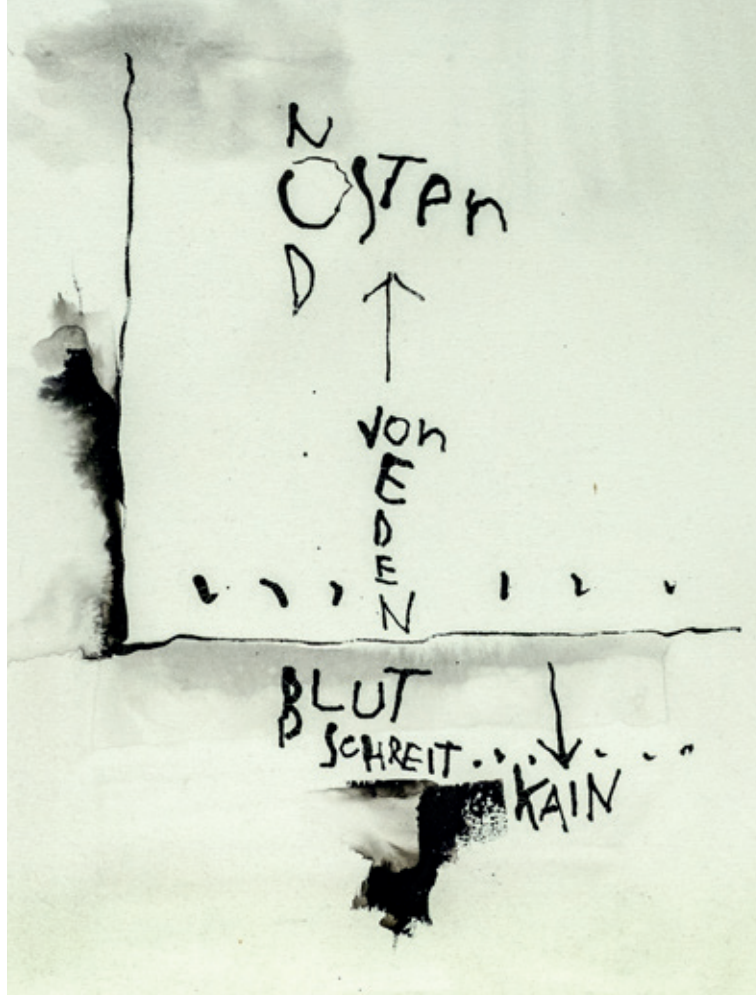 N
OSTen
D
von
E
D
E
N
BLUT
SCHREIT....
KAIN